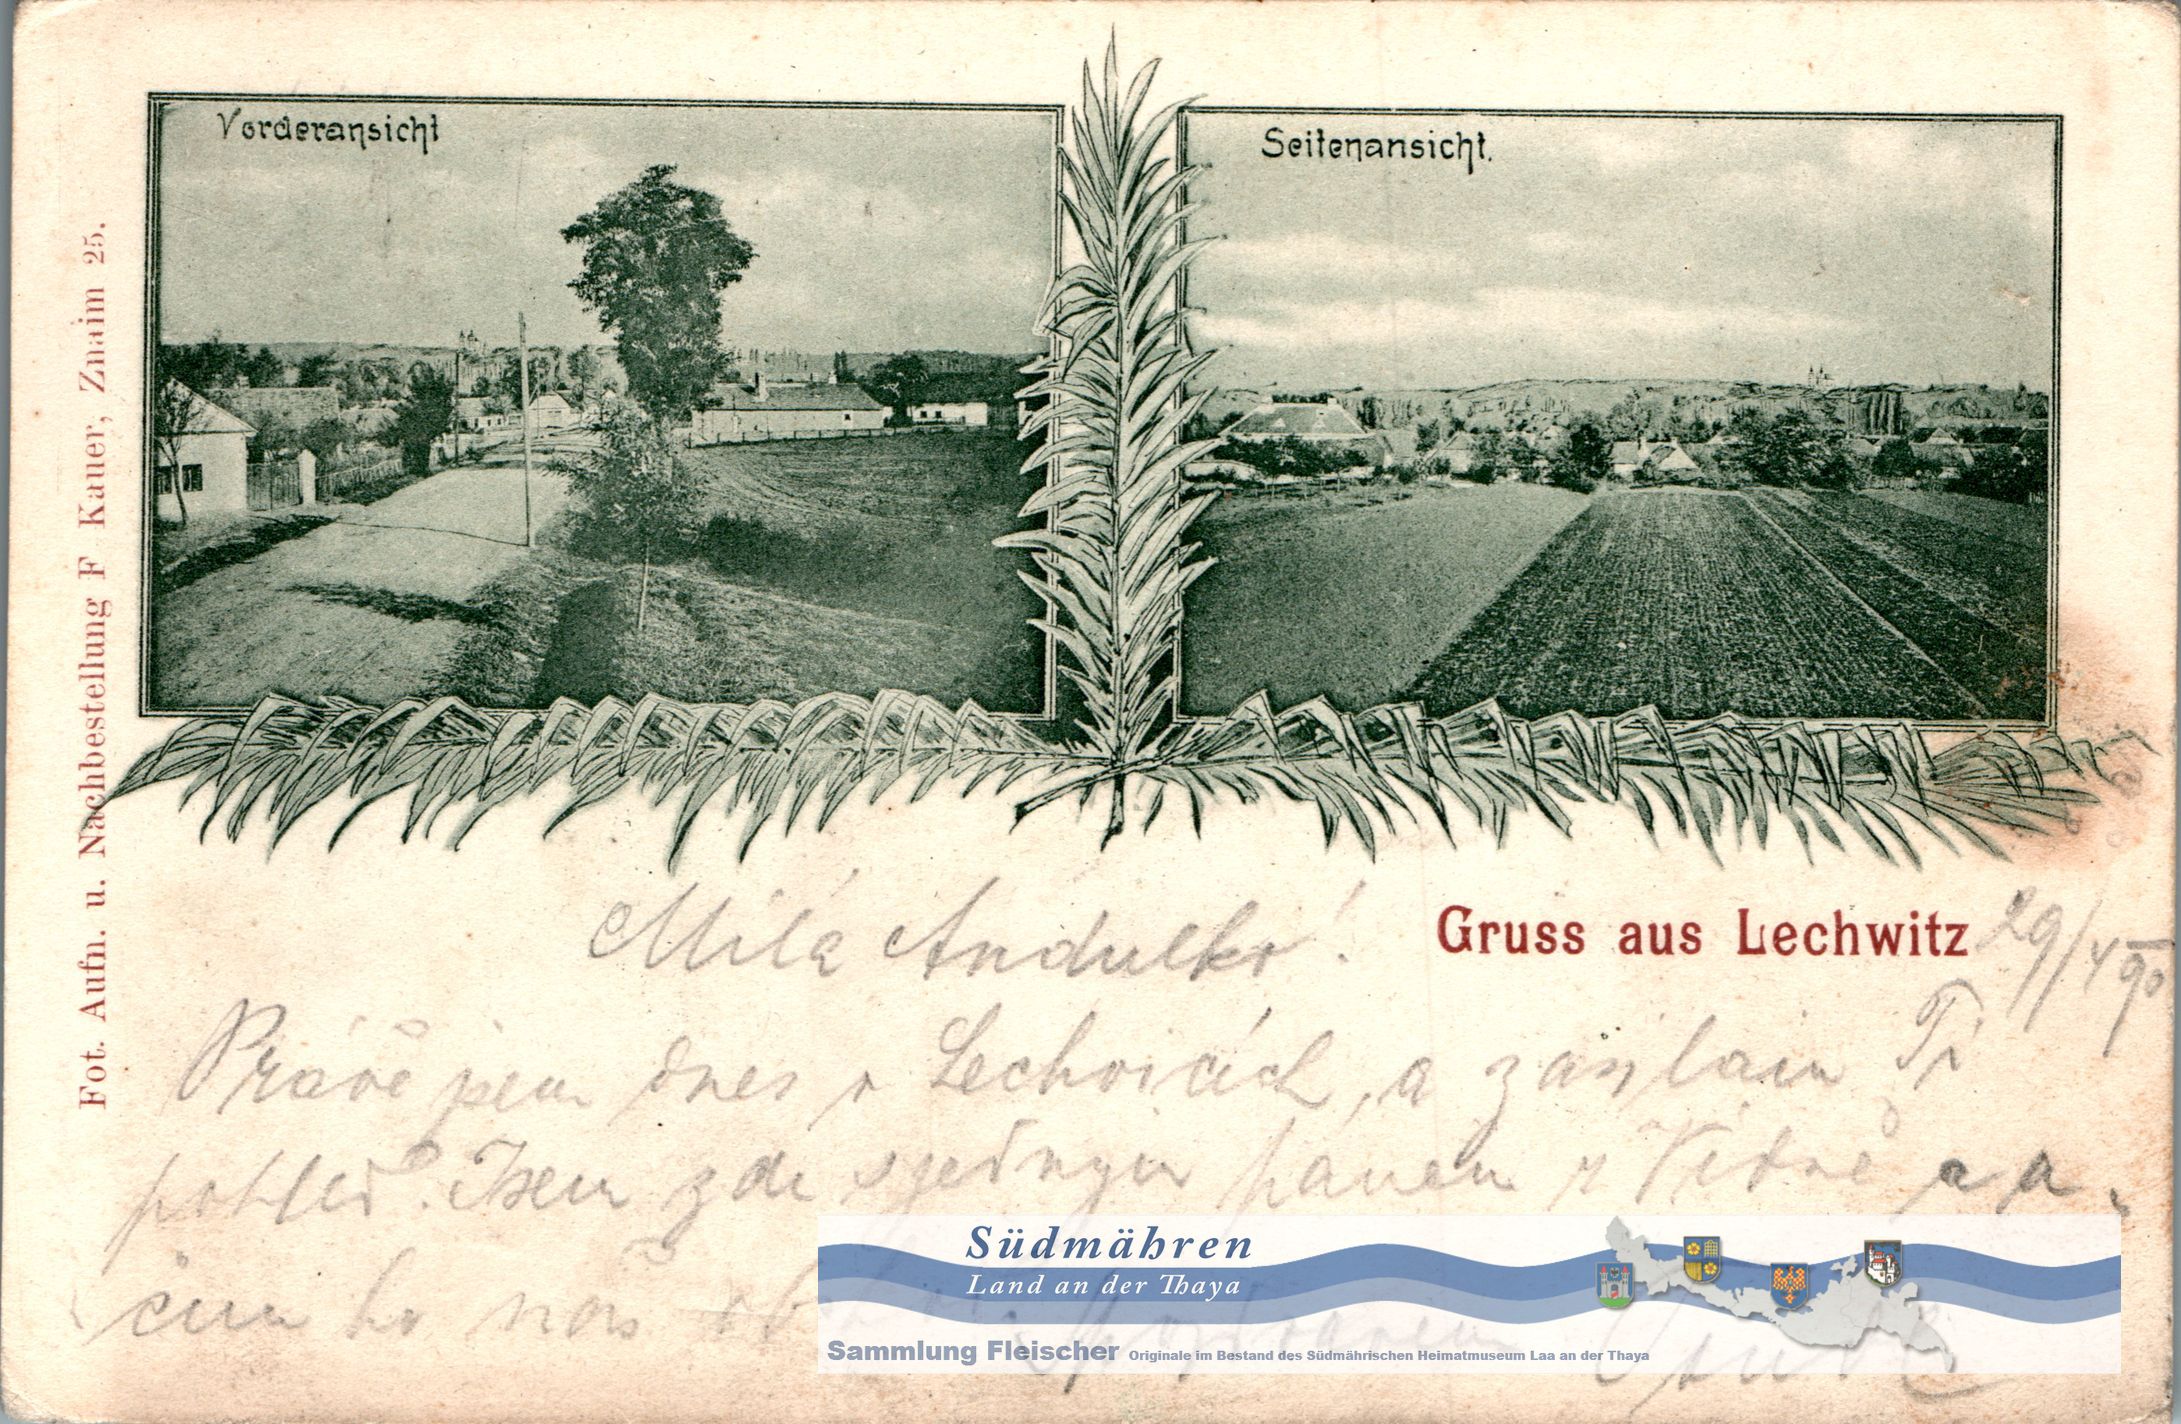 Vorderansicht
Seitenansicht.
Fot. Aufn. u. Nachbestellung F Kauer, Znaim 25.
Gruss aus Lechwitz
29/4
Milá Andulko!
Právě jsem dnes v Lechvicích, a zasílám Ti
pohled. Jsem zde s jedným pánem z Vídně
náš
Südmähren
Land an der Thaya
Sammlung Fleischer Originale im Bestand des Südmährischen Heimatmuseum Laa an der Thaya